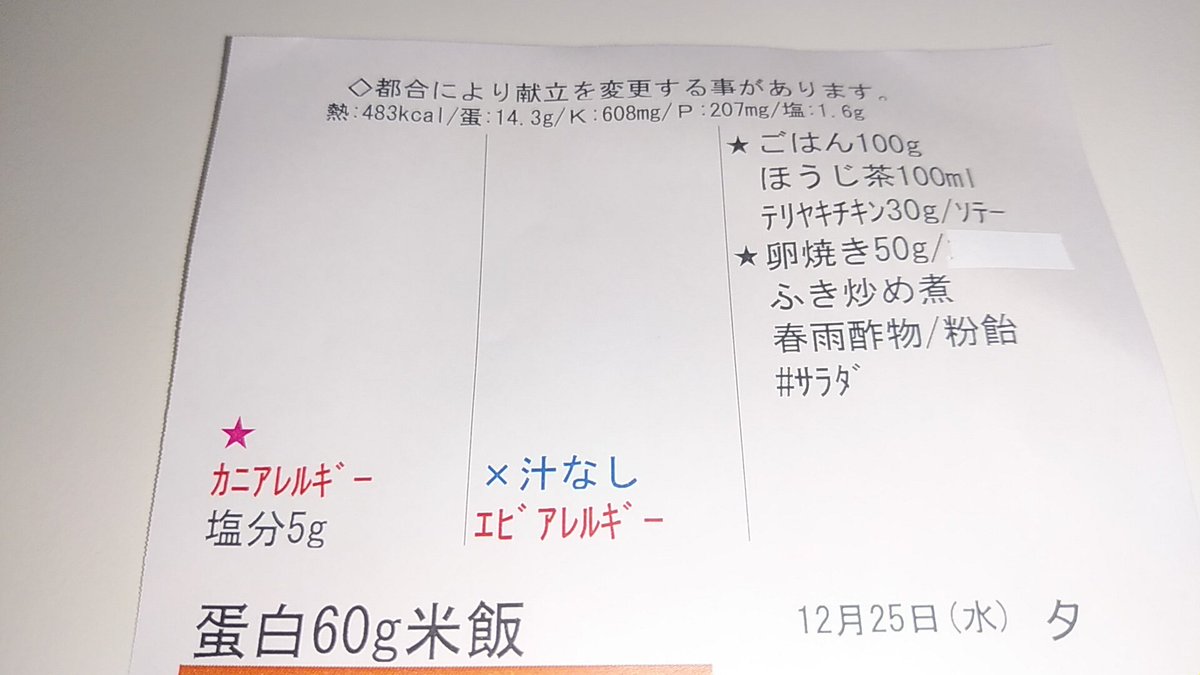 ◇都合により献立を変更する事があります。
熱:483kcal/蛋:14.3g/K:608mg/P:207mg/塩:1.6g
★ごはん100g
ほうじ茶100ml
ﾃﾘﾔｷﾁｷﾝ30g/ｿﾃｰ
★卵焼き50g/
ふき炒め煮
春雨酢物/粉飴
#ｻﾗﾀﾞ
★
ｶﾆｱﾚﾙｷﾞｰ
塩分5g
×汁なし
ｴﾋﾞｱﾚﾙｷﾞｰ
蛋白60g米飯
12月25日(水) 夕